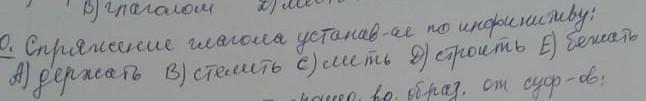 В) глаголом
0. Спряжение глагола устанав-ае по инфинитиву:
А) держать В) стелить С) лить Д) строить Е) бежать
образ. от суф-ов: